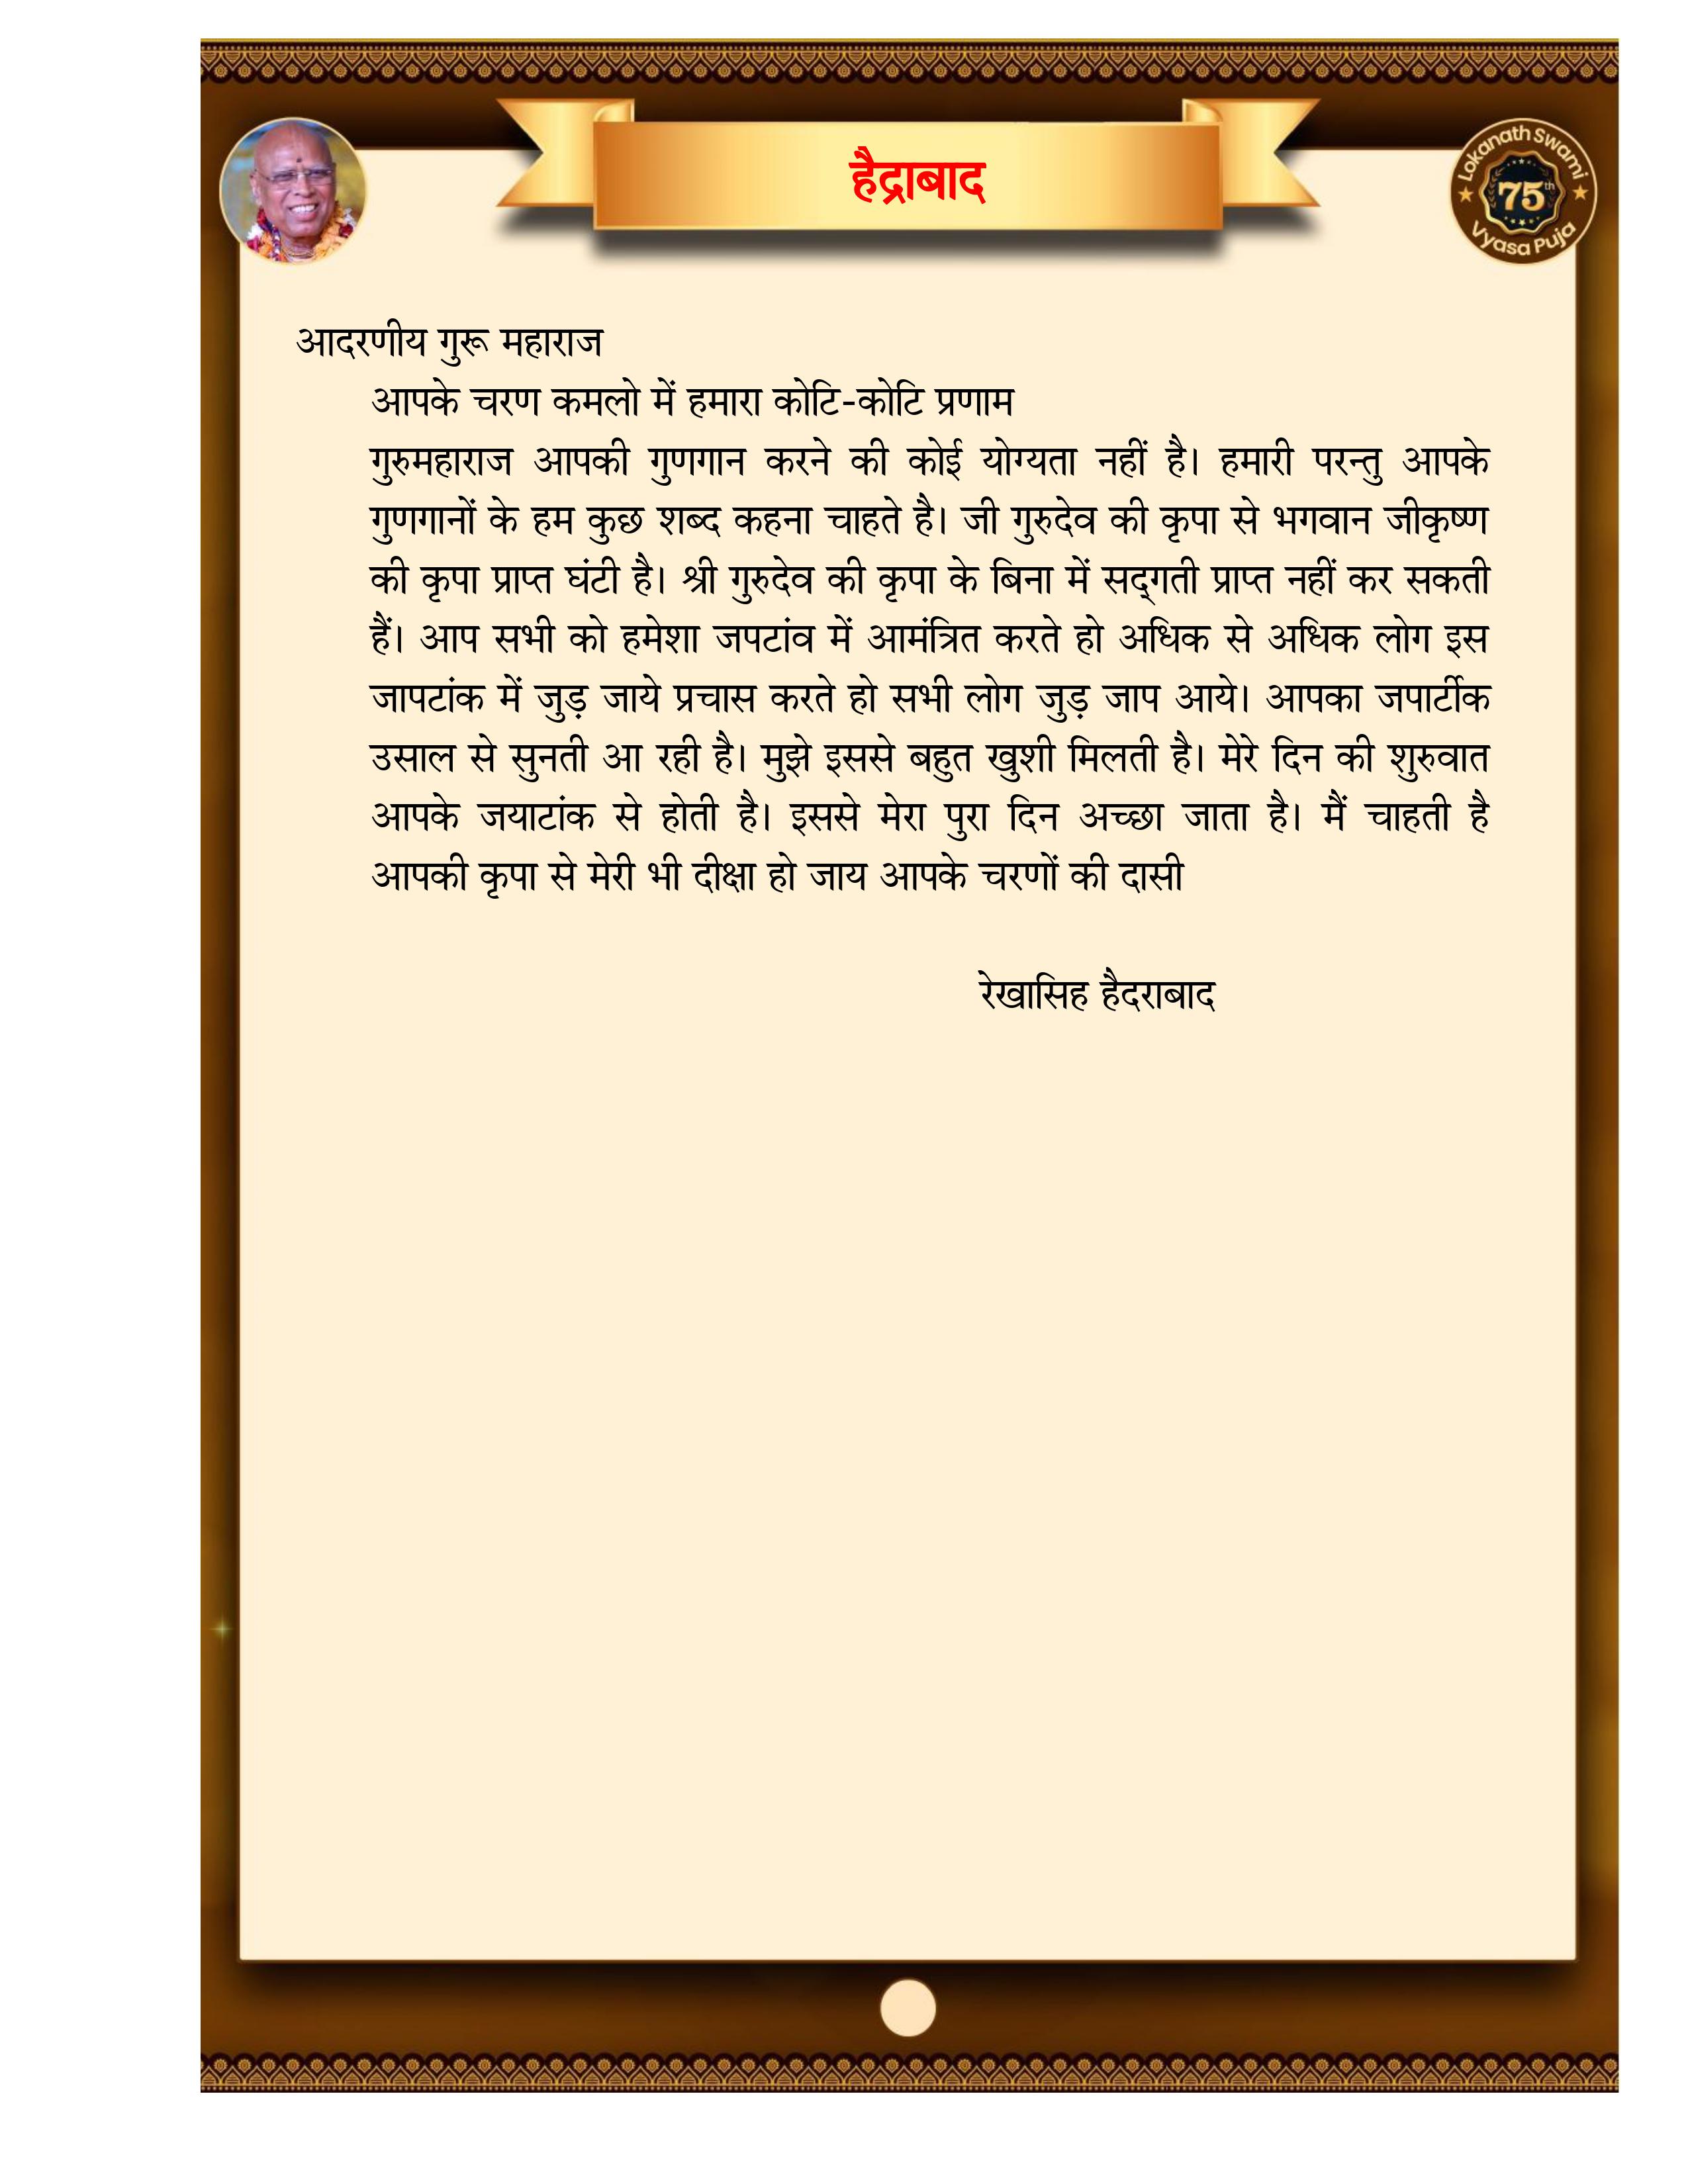 हैद्राबाद
Lokanath Swami
75th
Vyasa Puja
आदरणीय गुरू महाराज
आपके चरण कमलो में हमारा कोटि-कोटि प्रणाम
गुरुमहाराज आपकी गुणगान करने की कोई योग्यता नहीं है। हमारी परन्तु आपके
गुणगानों के हम कुछ शब्द कहना चाहते है। जी गुरुदेव की कृपा से भगवान जीकृष्ण
की कृपा प्राप्त घंटी है। श्री गुरुदेव की कृपा के बिना में सद्‌गती प्राप्त नहीं कर सकती
हैं। आप सभी को हमेशा जपटांव में आमंत्रित करते हो अधिक से अधिक लोग इस
जापटांक में जुड़ जाये प्रचास करते हो सभी लोग जुड़ जाप आये। आपका जपार्टीक
उसाल से सुनती आ रही है। मुझे इससे बहुत खुशी मिलती है। मेरे दिन की शुरुवात
आपके जयाटांक से होती है। इससे मेरा पुरा दिन अच्छा जाता है। मैं चाहती है
आपकी कृपा से मेरी भी दीक्षा हो जाय आपके चरणों की दासी
रेखासिह हैदराबाद